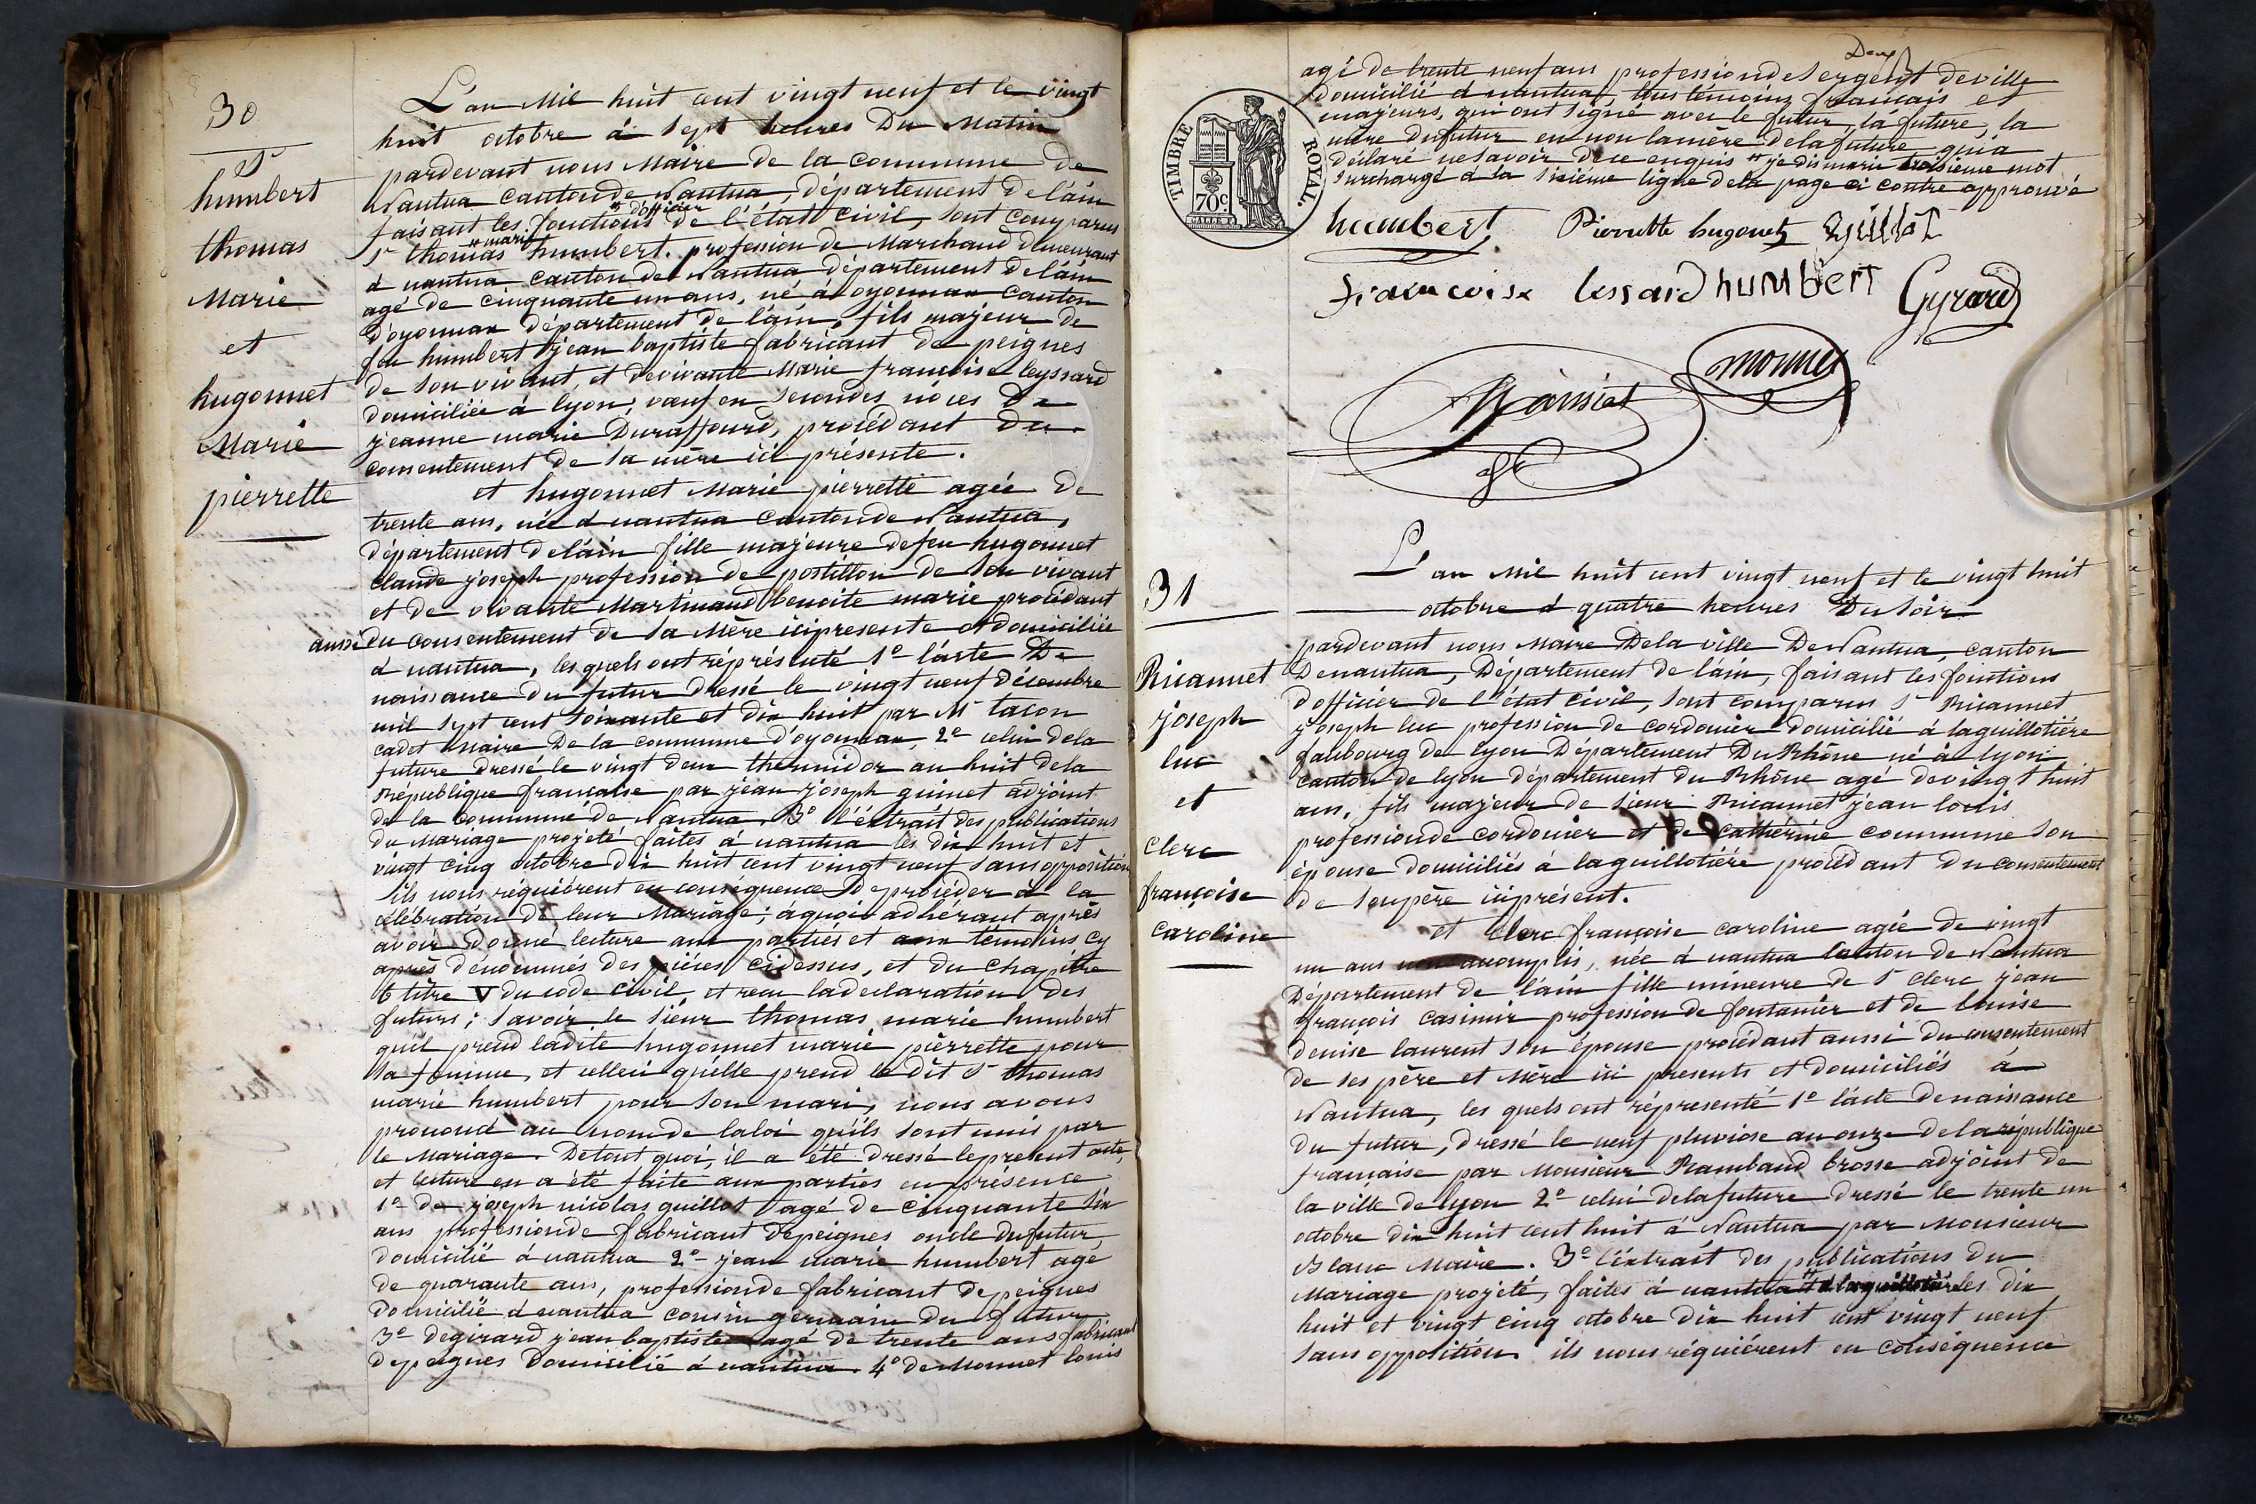 30
Sr
humbert
thomas
Marie
et
hugonnet
Marie
pierrette
L'an Mil huit cent vingt neuf et le vingt
huit octobre à sept heures Du Matin
pardevant nous Maire de la commune de
Nantua canton de Nantua, département de l'ain
faisant les fonctions d'officier de l'état civil, sont comparus
Sr thomas marie humbert. profession de Marchand demeurant
à nantua canton de Nantua département de l'ain
agé de cinquante un ans, né à oyonnax canton
d'oyonnax département de l'ain, fils majeur de
feu humbert jean baptiste fabricant de peignes
de son vivant, et de vivante Marie françoise leyssard
domiciliée à lyon, vœuf en secondes nóces De
jeanne marie Duraffourd, procédant du
consentement de sa mère ici présente.
et hugonnet Marie pierrette agée De
trente ans, née à nantua canton de Nantua,
département de l'ain fille majeure de feu hugonnet
claude joseph profession de postillon de son vivant
et de vivante Martinand benoite marie procédant
aussi du consentement de sa Mère ici presente et domiciliée
à nantua, les quels ont réprésenté 1º l'acte De
naissance du futur dressé le vingt neuf décembre
mil sept cent soixante et dix huit par Mr tacon
cadet Maire De la commune d'oyonnax, 2º celui de la
future dressé le vingt deux thermidor an huit de la
République française par jean joseph guinet adjoint
de la commune de Nantua. 3º l'éxtrait des publications
du Mariage projeté faites à nantua les dix huit et
vingt cinq octobre dix huit cent vingt neuf sans opposition
ils nous réquiérent en conséquence de procéder à la
célébration de leur Mariage; à quoi adhérant après
avoir donné lecture aux partiés et aux témoins cy
après dénommés des piéces cidessus, et du chapitre
6 titre V du code civil, et reçu la declaration des
futurs; savoir le sieur thomas marie humbert
quil prend ladite hugonnet marie pierrette pour
sa femme, et celleci quelle prend le dit Sr thomas
marie humbert pour son mari, nous avons
prononcé au nom de la loi qu'ils sont unis par
le Mariage. De tout quoi, il a été dressé le present acte,
et lecture en a été faite aux partiés en présence
1º de joseph nicolas guillot agé de cinquante six
ans profession de fabricant de peignes oncle du futur,
domicilié à nantua 2º jean marie humbert agé
de quarante ans, profession de fabricant de peignes
domicilié à nantua cousin germain du futur
3º de girard jean baptiste agé de trente ans fabricant
de peignes domicilié à nantua. 4º de Monnet louis
Deux
agé de trente neuf ans profession de Sergent de ville
domicilié à nantua, tous témoins francais et
majeurs, qui ont signé avec le futur, la future, la
mere du futur en non la mère de la future qui a
déclaré ne savoir de ce enquis # je dis marie troisieme mot
surchargé à la sixiéme ligne de la page ci contre approuvé
TIMBRE ROYAL.
70c
humbert Pierrette hugonet guillot
francoise lessard humbert Gyrard
monnet
31
Ricannet
joseph
luc
et
clerc
françoise
caroline
L'an Mil huit cent vingt neuf et le vingt huit
octobre à quatre heures Du soir
pardevant nous Maire De la ville De Nantua, canton
De nantua, Département de l'ain, faisant les fonctions
d'officier de l'état civil, sont comparus Sr Ricannet
joseph luc profession de cordonier domicilié à laguillotiére
faubourg de lyon Département Du Rhône né à lyon
canton de lyon département du Rhône agé de vingt huit
ans, fils majeur de sieur Ricannet jean louis
profession de cordonier et de cathérine commune son
épouse domiciliés à laguillotiére procédant du consentement
de son père ici présent.
et clerc françoise caroline agée de vingt
un ans accomplis, née à nantua canton de Nantua
Département de l'ain fille mineure de Sr clerc jean
françois casimir profession de fontanier et de louise
denise laurent son épouse procédant aussi du consentement
de ses père et Mère ici presents et domiciliés à
Nantua, les quels ont répresenté 1º l'acte de naissance
du futur, dressé le neuf pluviose an onze de la république
française par Monsieur Rambaud brosse adjoint de
la ville de lyon 2º celui de la future dressé le trente un
octobre dix huit cent huit à Nantua par Monsieur
Blanc Maire. 3º l'éxtrait des publications du
Mariage projeté, faites à nantua # et à laguillotiére les dix
huit et vingt cinq octobre dix huit cent vingt neuf
sans opposition ils nous réquiérent en conséquence